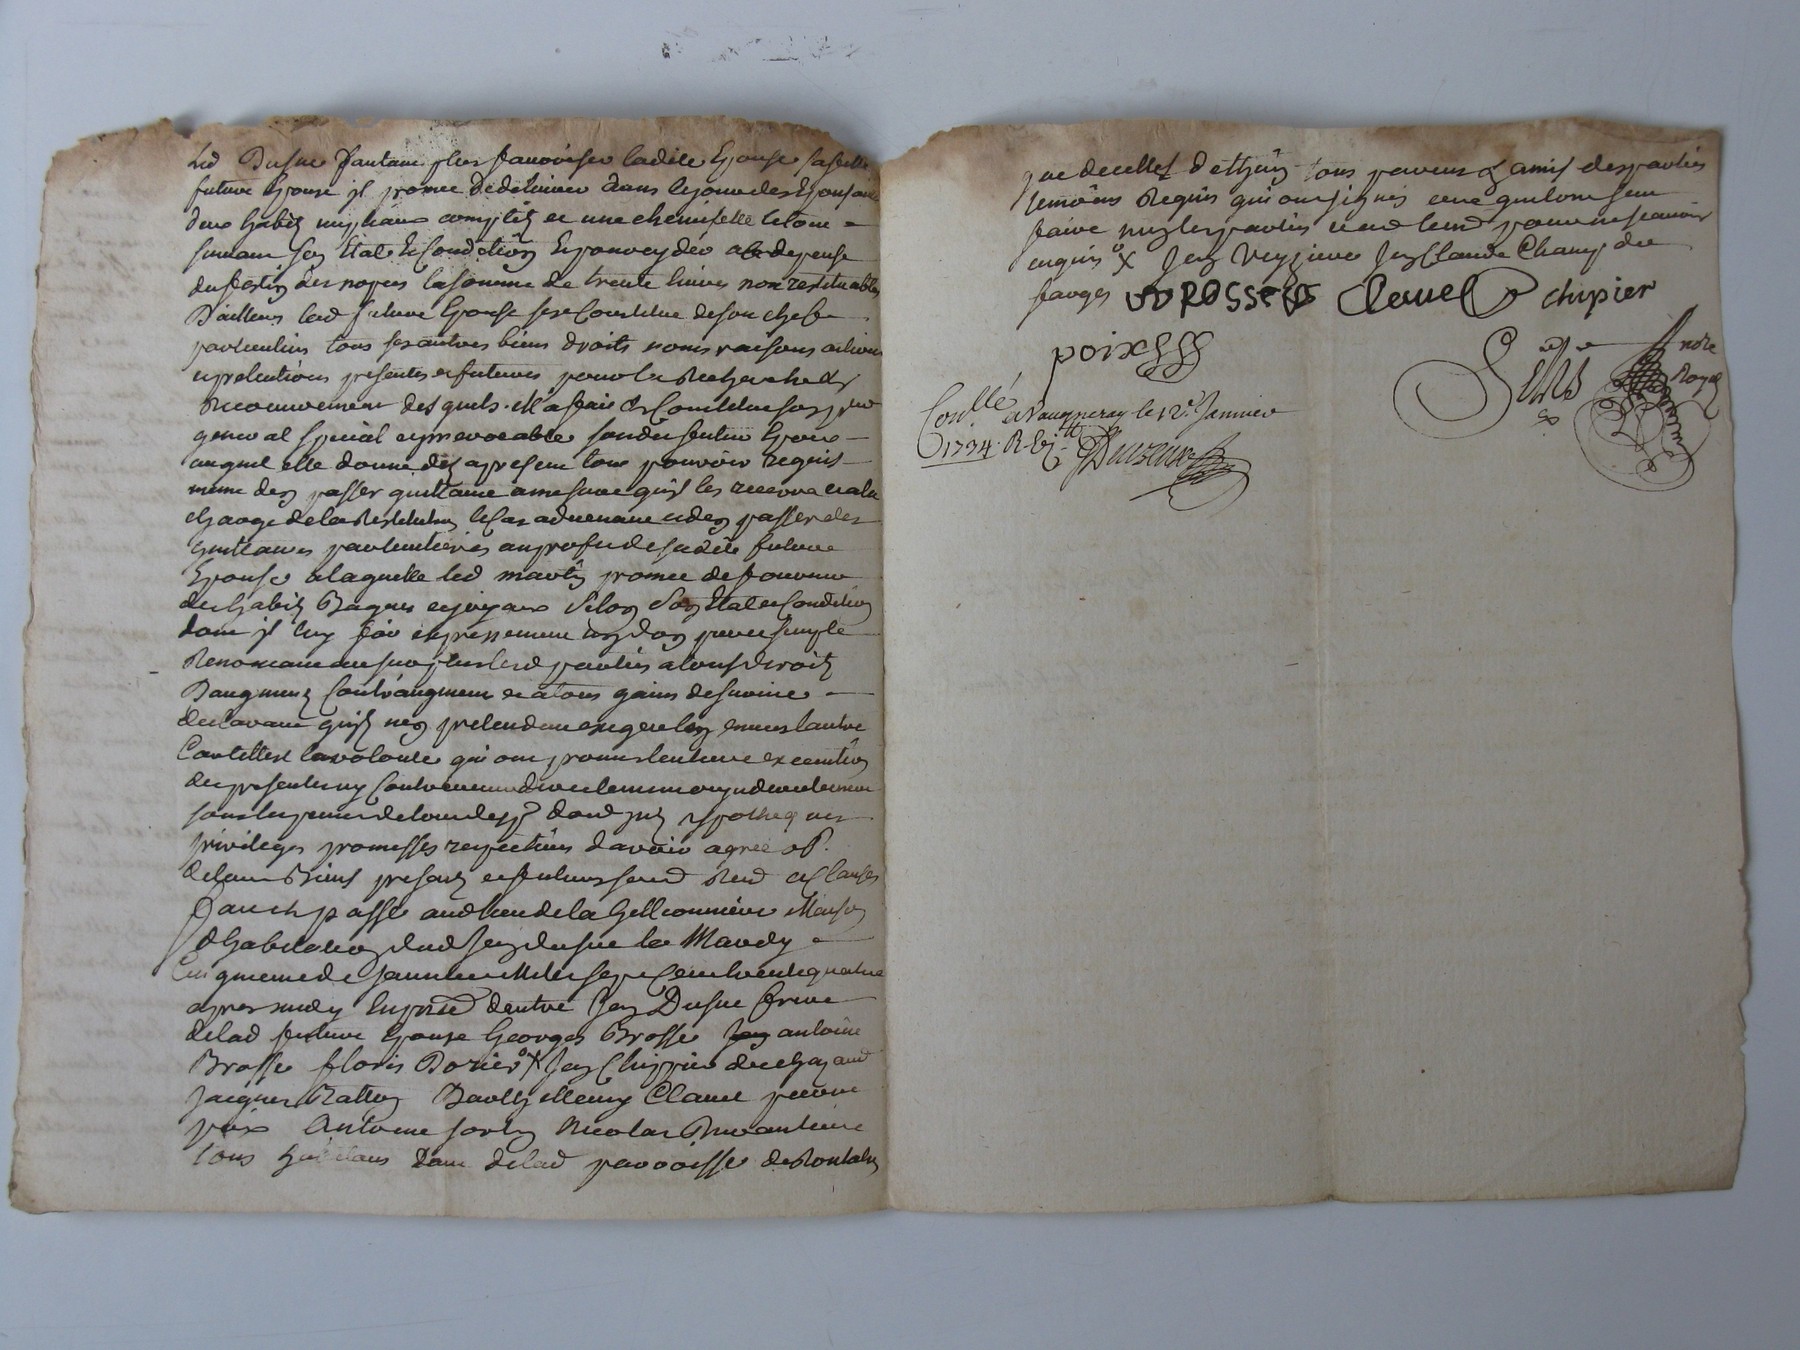 Led Dusue dautant plus favoriser ladite Epouse sa fille
future Epouse il promet de delivrer dans le jour des Epousailles
deux habits nuptiaux complets et une chemise le tout
suivant son Etat et Condition Et pour ayder a la depense
du festin des nopces la somme de trente livres non restituables
D'ailleurs lad future Epouse se Constitue de son chef
particulier tous ses autres biens droits noms raisons actions
et pretentions presents et futures pour la Recherche &
Recouvrement desquels elle a fait et Constitue son pro
general special et irrevocable sond futur Epoux
auquel elle donne des apresent tous pouvoirs requis
meme den passer quittance amesure quil les recevra et a la
charge de la Restitution le Cas advenant et den passer des
quittances particulieres au profit de sadite future
Epouse a laquelle led martin promet de fournir
des habits Bagues et joyaux Selon son Etat et Condition
dont il luy fait expressement un don pur et simple
Renoncant au surplus lesd parties a tous droits
D'augment Contraugment et a tous gains de survie
declarant quils nen pretendent exiger lun envers lautre
Car telle est la volonté qui ont promis lentiere execution
des presentes ny Contrevenir directement ny indirectement
sous les peines de tous desp. dom. int. ypotheques
privileges promesses respectives d'avoir agreé ob.
de leurs Biens presents et futurs soumd Rend et Clauses
fait et passé aud lieu de la Gellconniere Maison
d'habitation dud Jean dusue le Mardy
Cinquieme de Janvier Mil sept Cent trente quatre
apres midy En presence d'autre Jean Dusue frere
de lad future Epouse Georges Brosse antoine
Brosse floris Dorier X Jean Chippier du chazaud
Jacques Ratton Barthellemy Clavel pierre
poix Antoine Nicolas
tous habitans Dans de lad parroisse de Rontalon
que de celles d'ethuin tous parens & amis des parties
temoins Requis qui ont signés ceux qui lont sceu
faire non les parties et aud lend pour ne scavoir
enquis X Jean Veyziere Jean Claude Champ du
farges BROSSE Clavel chipier
poix
notre
Royal
Conllé a Vaugneray le 12e Janvier
1734